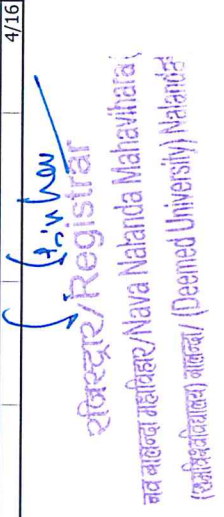 4/16
रजिस्ट्रार/Registrar
नव नालन्दा महाविहार/Nava Nalanda Mahavihara
(समविश्वविद्यालय) नालन्दा/ (Deemed University) Nalanda